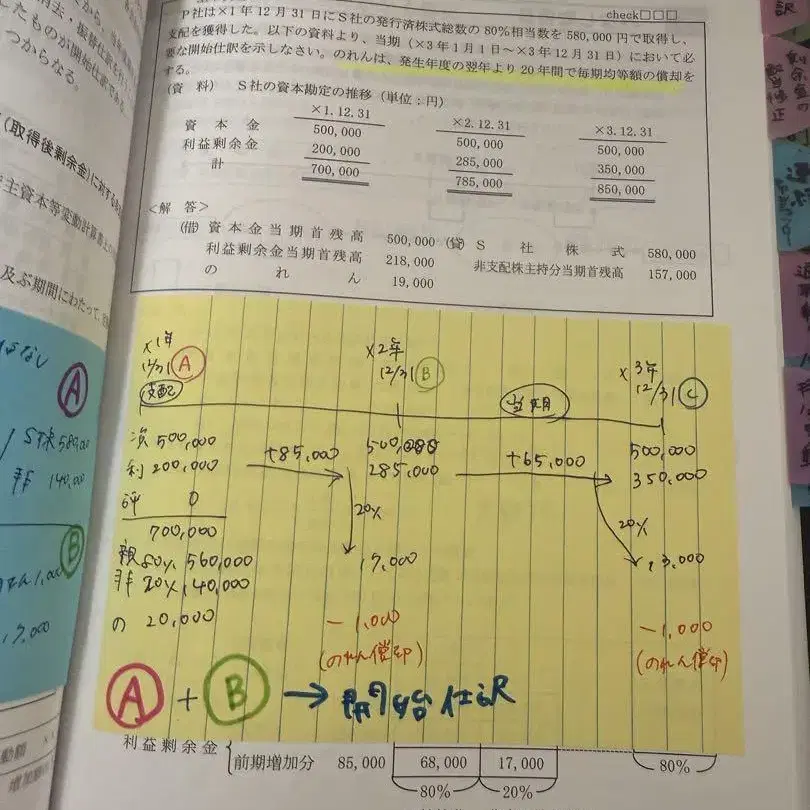 check□□□
P社は×1年12月31日にS社の発行済株式総数の80％相当数を580,000円で取得し、
支配を獲得した。以下の資料より、当期（×3年1月1日～×3年12月31日）において必
要な開始仕訳を示しなさい。のれんは、発生年度の翌年より20年間で毎期均等額の償却を
する。
（資 料） S社の資本勘定の推移（単位：円）
×1.12.31 ×2.12.31 ×3.12.31
資本金 500,000 500,000 500,000
利益剰余金 200,000 285,000 350,000
計 700,000 785,000 850,000
＜解 答＞
(借) 資本金当期首残高 500,000 (貸) S社株式 580,000
利益剰余金当期首残高 218,000 非支配株主持分当期首残高 157,000
のれん 19,000
(取得後剰余金)に対する
主資本等変動計算書上の
及ぶ期間にわたって、
つからなる。
なし
A
S株580,000
非 140,000
B
1,000
17,000
×1年
12/31 A
支配
×2年
12/31 B
当期
×3年
12/31 C
資 500,000
利 200,000
評 0
700,000
親80% 560,000
非20% 140,000
の 20,000
+85,000
500,000
285,000
20%
17,000
-1,000
(のれん償却)
+65,000
500,000
350,000
20%
13,000
-1,000
(のれん償却)
A + B → 開始仕訳
利益剰余金
前期増加分 85,000 68,000 17,000
80% 20% 80%